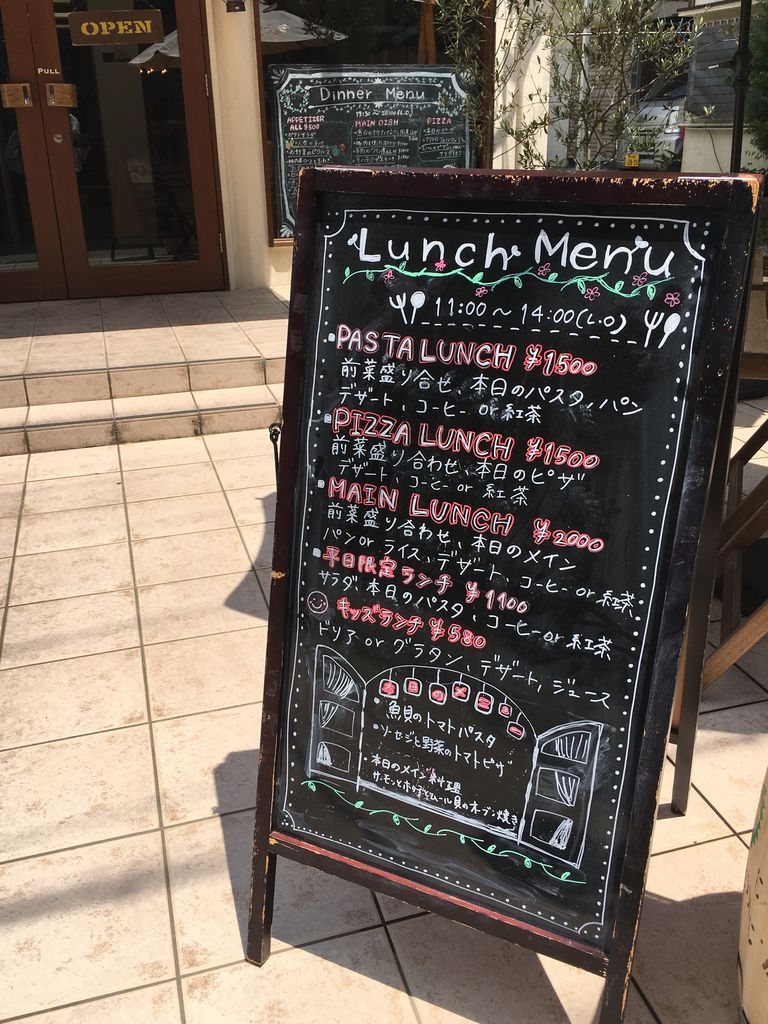 OPEN
PULL
Dinner Menu
APPETIZER
ALL ¥500
MAIN DISH
PIZZA
Lunch Menu
11:00～14:00(L.O)
PASTA LUNCH ¥1500
前菜盛り合せ、本日のパスタ、パン
デザート、コーヒー or 紅茶
PIZZA LUNCH ¥1500
前菜盛り合わせ、本日のピザ
デザート、コーヒー or 紅茶
MAIN LUNCH ¥2000
前菜盛り合わせ、本日のメイン
パン or ライス、デザート、コーヒー or 紅茶
平日限定ランチ ¥1100
サラダ、本日のパスタ、コーヒー or 紅茶
キッズランチ ¥580
ドリア or グラタン、デザート、ジュース
本日のメニュー
・魚貝のトマトパスタ
・ソーセジと野菜のトマトピザ
・本日のメイン料理
サーモンとホタテとムール貝のオーブン焼き